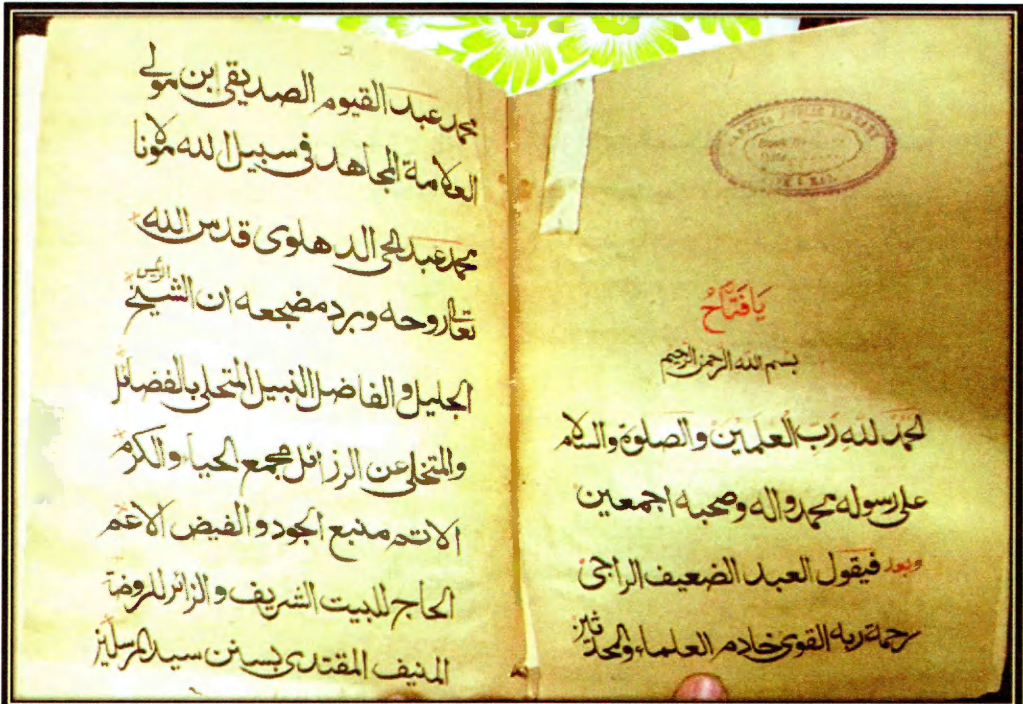 يَا فَتَّاحُ
بسم الله الرحمن الرحيم
الحمد لله رب العلمين والصلوة والسلام
على رسوله محمد واله وصحبه اجمعين
وبعد فيقول العبد الضعيف الراجى
رحمة ربه القوى خادم العلماء والمحدثين
محمد عبد القيوم الصديقى ابن مولى
العلامة المجاهد فى سبيل الله مولانا
محمد عبد الحى الدهلوى قدس الله
تعالى روحه وبرد مضجعه ان الشيخ الرئيس
الجليل والفاضل النبيل المتحلى بالفضائل
والمتخلى عن الرزائل مجمع الحياء والكرم
الاتم منبع الجود والفيض الاعم
الحاج للبيت الشريف والزائر للروضة
المنيف المقتدى بسنن سيد المرسلين